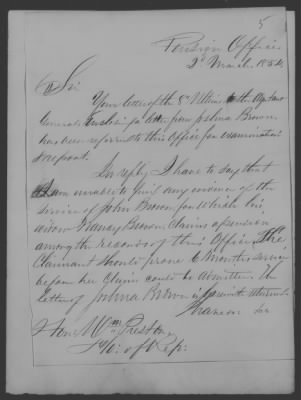 5
Pension Office
2d March 1854
Sir
Your letter of the 8th Ultimo to the Adjutant
General Enclosing a letter from Joshua Brown
has been referred to this Office for examination
& report.
In reply I have to say that
I am unable to find any evidence of the
service of John Brown for which his
widow Nancy Brown Claims a pension
among the records of this Office. The
Claimant should prove 6 Months service
before her Claim could be admitted. The
letter of Joshua Brown is herewith returned
I have
Hon. Wm. Preston
Ho: of Rep: